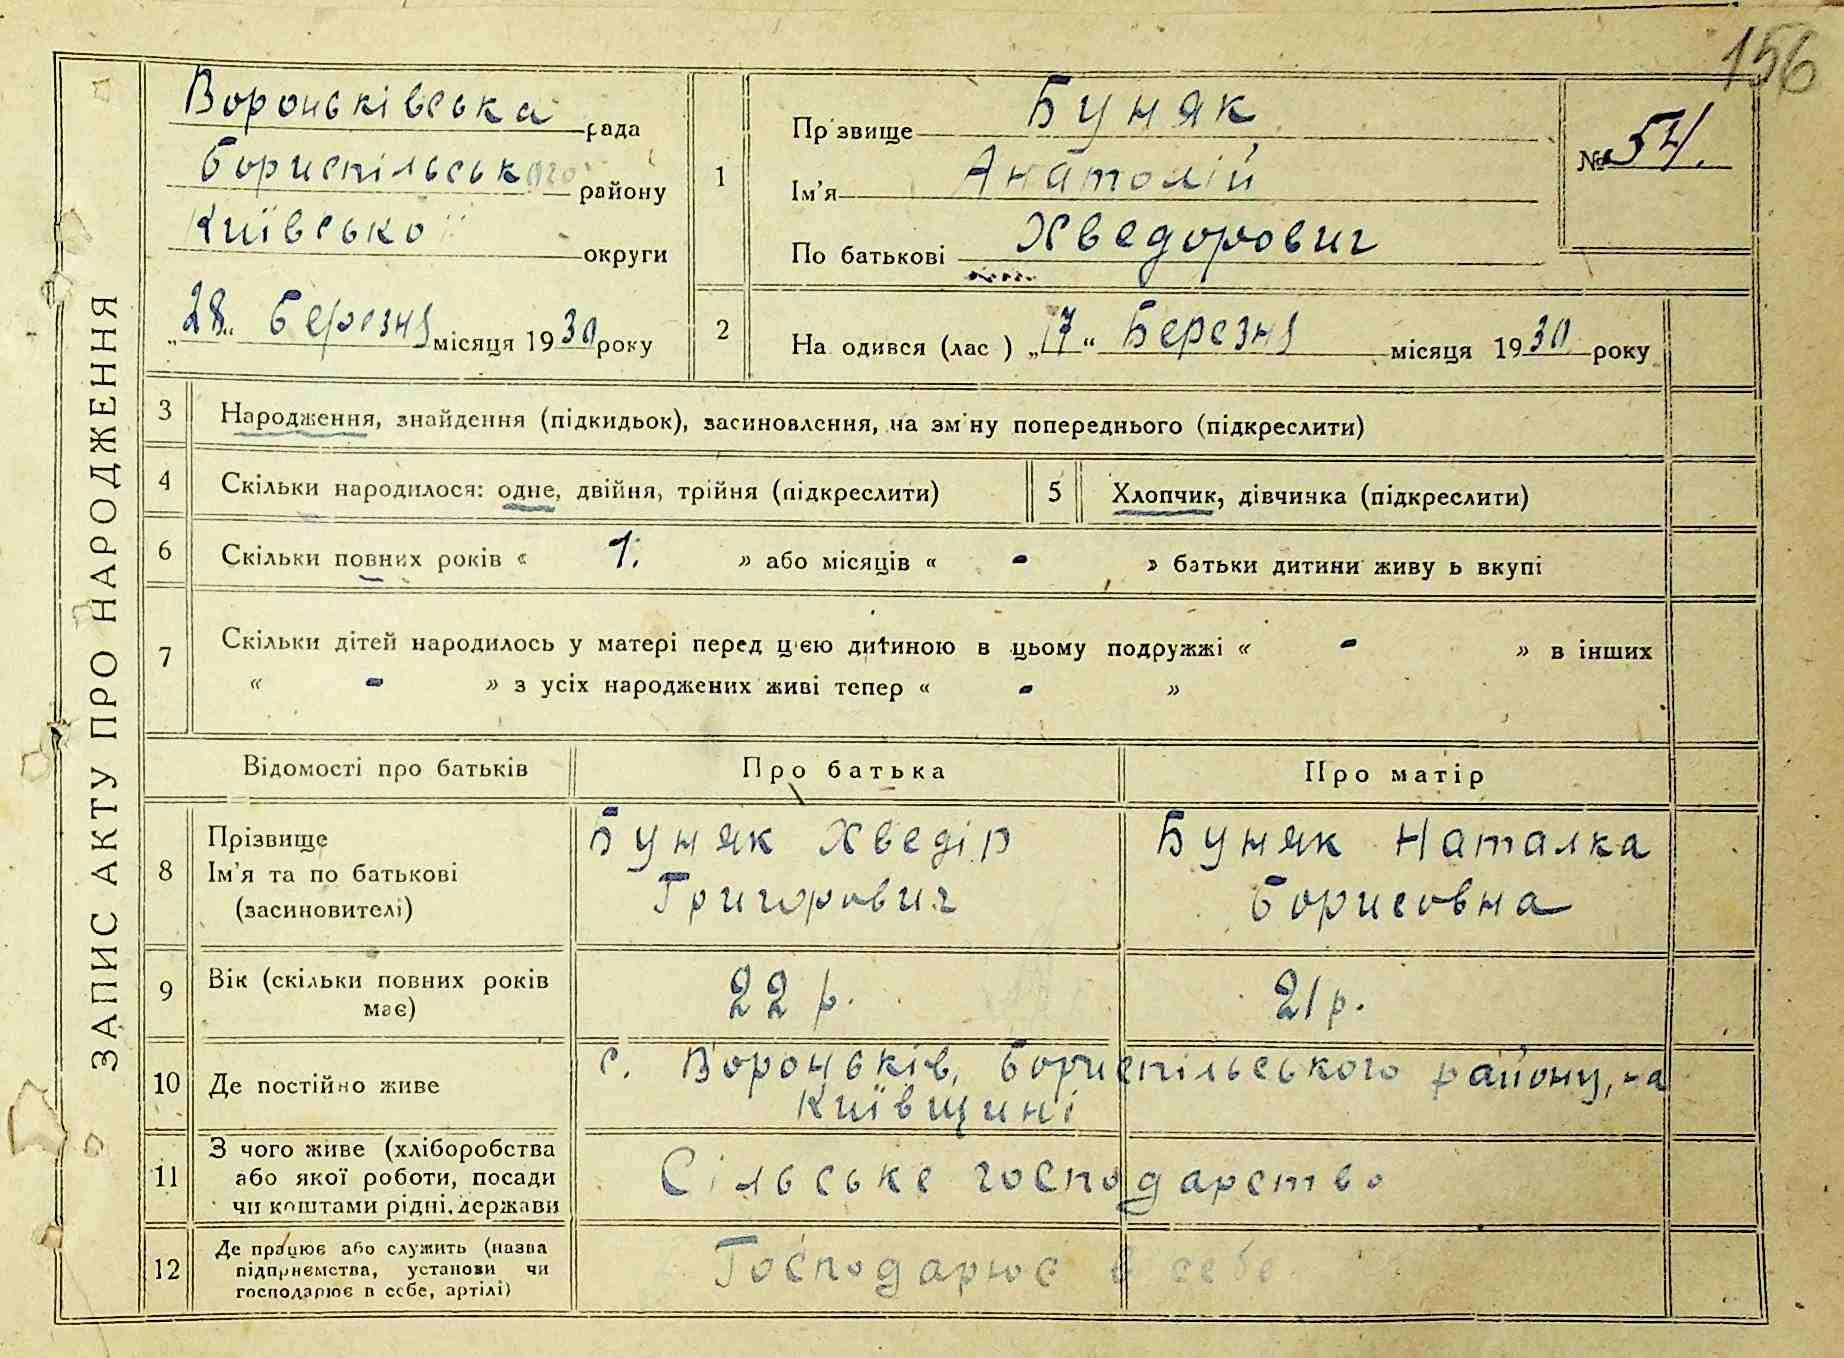 156
ЗАПИС АКТУ ПРО НАРОДЖЕННЯ
Вороньківська рада
Бориспільського району
Київської округи
„28“ Березня місяця 1930 року
1
Пр звище Буняк
Ім’я Анатолій
По батькові Хведорович
№ 54.
2
На одився (лас ) „17“ Березня місяця 1930 року
3
Народження, знайдення (підкидьок), засиновлення, на зм ну попереднього (підкреслити)
4
Скільки народилося: одне, двійня, трійня (підкреслити)
5
Хлопчик, дівчинка (підкреслити)
6
Скільки повних років « 1. » або місяців « - » батьки дитини живу ь вкупі
7
Скільки дітей народилось у матері перед цією дитиною в цьому подружжі « - » в інших
« - » з усіх народжених живі тепер « - »
Відомості про батьків
Про батька
Про матір
8
Прізвище
Ім’я та по батькові
(засиновителі)
Буняк Хведір
Григорович
Буняк Наталка
Борисовна
9
Вік (скільки повних років
має)
22 р.
21 р.
10
Де постійно живе
с. Вороньків, Бориспільського району, на
Київщині
11
З чого живе (хліборобства
або якої роботи, посади
чи коштами рідні, держави
Сільське господарство
12
Де працює або служить (назва
підприємства, установи чи
господарює в себе, артілі)
Господарює в себе